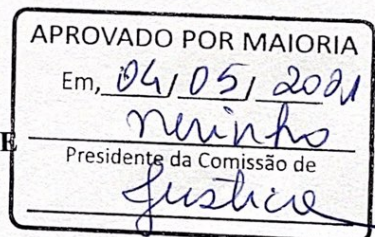 APROVADO POR MAIORIA
Em, 04/05/2021
Nerinho
E
Presidente da Comissão de
Justiça